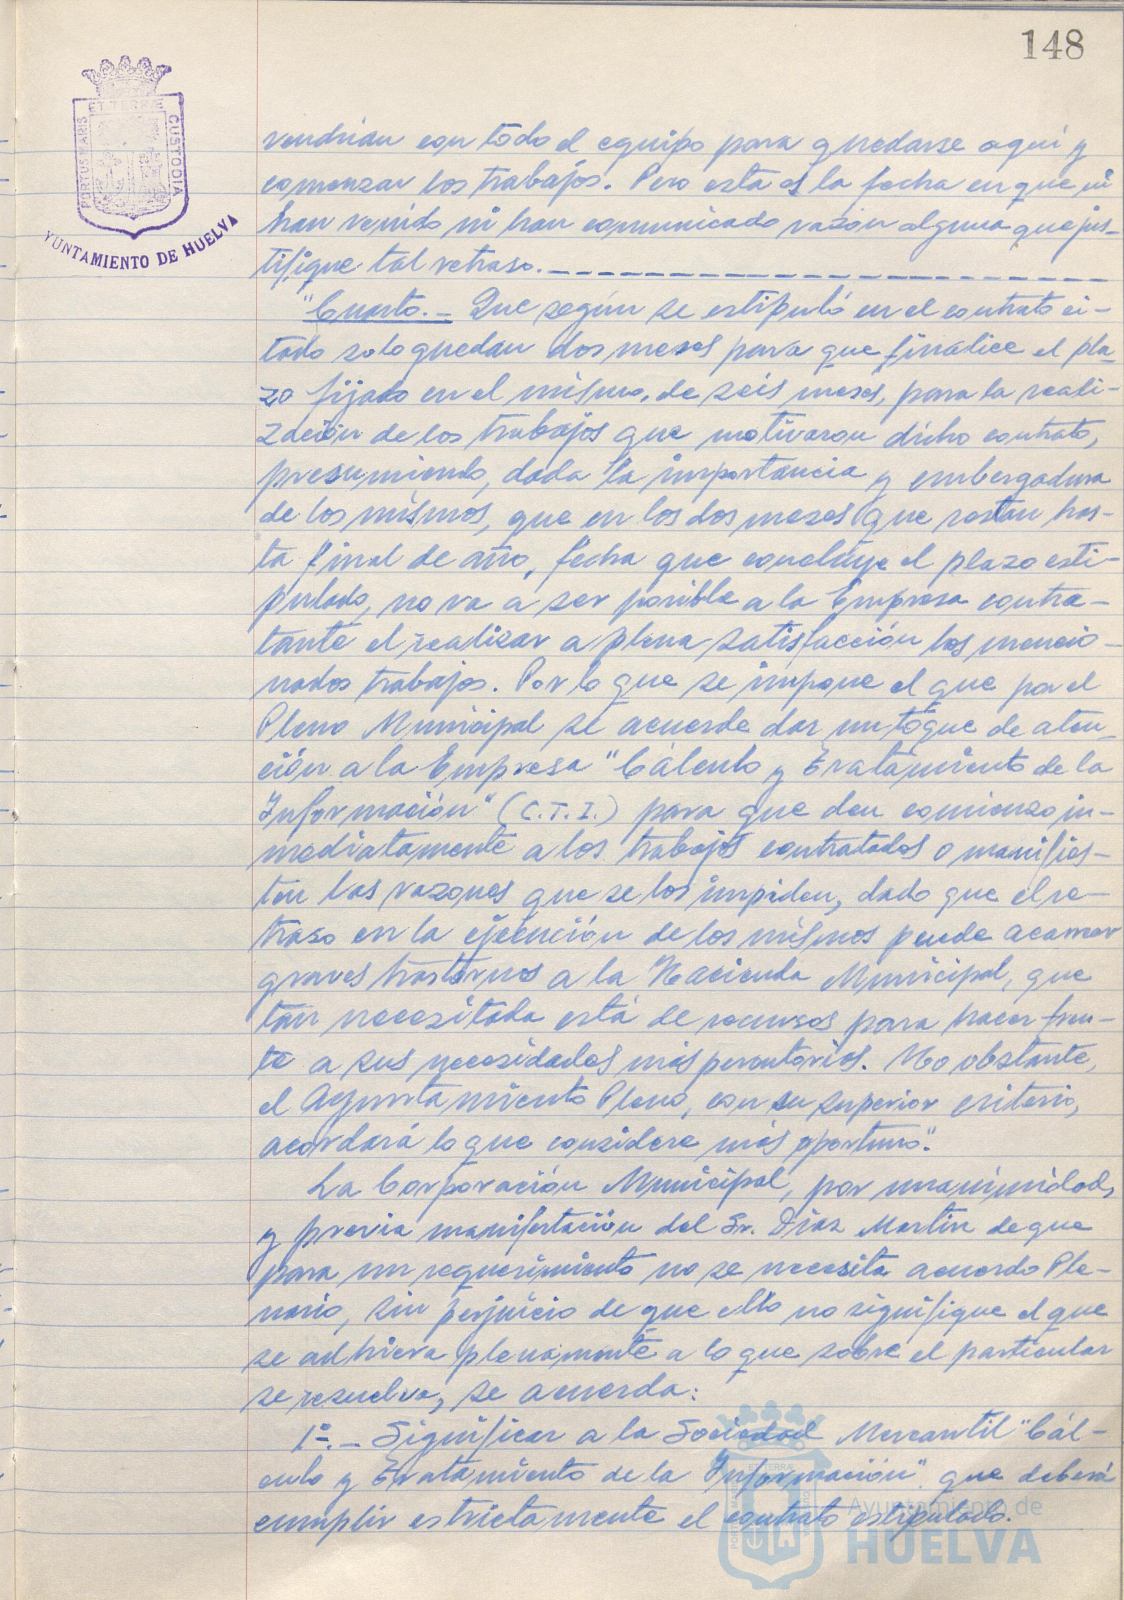 148
ET TERRÆ
PORTUS MARIS
CUSTODIA
YUNTAMIENTO DE HUELVA
vendrían con todo el equipo para quedarse aquí y
comenzar los trabajos. Pero esta es la fecha en que ni
han venido ni han comunicado razón alguna que jus-
tifique tal retraso.
"Cuarto.- Que según se estipuló en el contrato ci-
tado solo quedan dos meses para que finalice el pla-
zo fijado en el mismo, de seis meses, para la reali-
zación de los trabajos que motivaron dicho contrato,
presumiendo, dada la importancia y embergadura
de los mismos, que en los dos meses que restan has-
ta final de año, fecha que concluye el plazo esti-
pulado, no va a ser posible a la Empresa contra-
tante el realizar a plena satisfacción los mencio-
nados trabajos. Por lo que se impone el que por el
Pleno Municipal se acuerde dar un toque de aten-
ción a la Empresa "Cálculo y Tratamiento de la
Información" (C.T.I.) para que den comienzo in-
mediatamente a los trabajos contratados o manifies-
ten las razones que se los impiden, dado que el re-
traso en la ejecución de los mismos puede acarrear
graves trastornos a la Hacienda Municipal, que
tan necesitada está de recursos para hacer fren-
te a sus necesidades más perentorias. No obstante,
el Ayuntamiento Pleno, con su superior criterio,
acordará lo que considere más oportuno".
La Corporación Municipal, por unanimidad,
y previa manifestación del Sr. Díaz Martín de que
para un requerimiento no se necesita acuerdo Ple-
nario, sin perjuicio de que ello no signifique el que
se adhiera plenamente a lo que sobre el particular
se resuelva, se acuerda:
1º.- Significar a la Sociedad Mercantil "Cál-
culo y Tratamiento de la Información" que deberá
cumplir estrictamente el contrato estipulado.
Ayuntamiento de
HUELVA